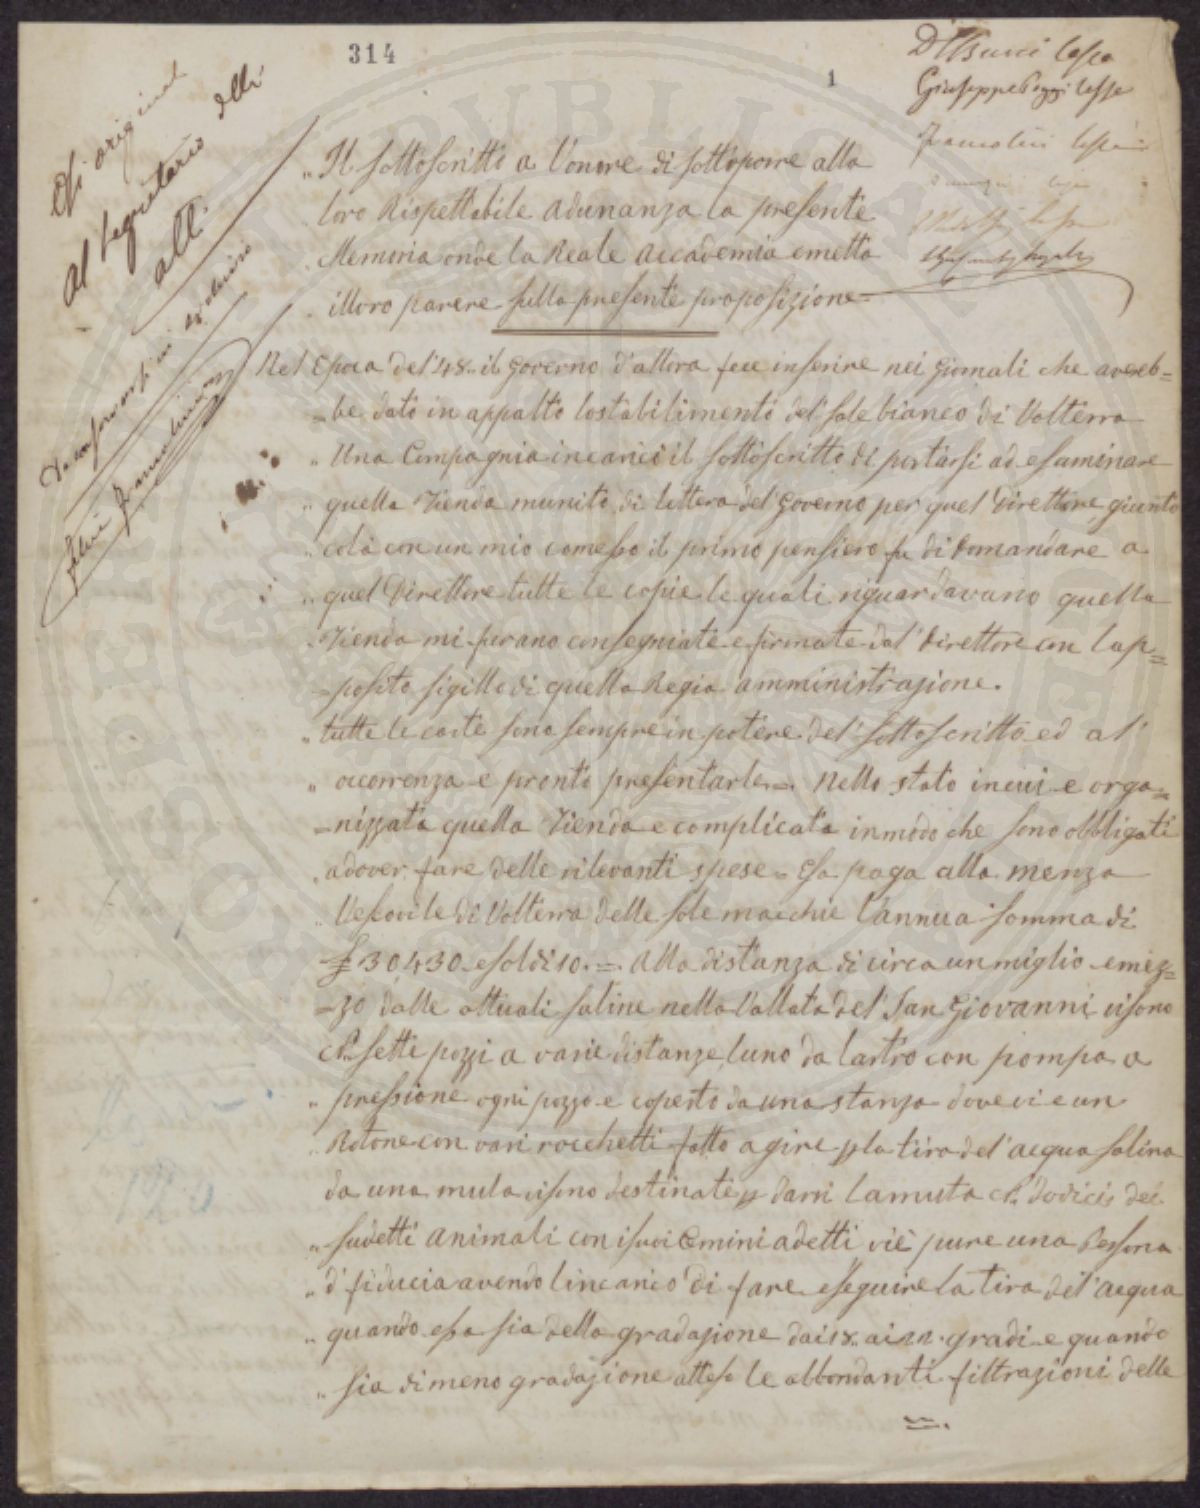 314
1
Il sottoscritto a l'onore di sottoporre alla
loro Rispettabile adunanza la presente
Memoria onde la Reale accademia emetta
illoro parere sulla presente proposizione=
Nel Epoca del'48.. il governo d'allora fece inserire nei giornali che avereb=
=be dato in appalto lostabilimento del' sale bianco di Volterra
Una Compagnia incaricò il sottoscritto di portarsi ad esaminare
quella Zienda munito di lettera del governo per quel Direttore, giunto
colà con un mio comesso il primo pensiero fu di domandare a
quel Direttore tutte le copie le quali riguardavano quella
Zienda mi furano consegniate e firmate dal' Direttore con l'ap=
=posito sigillo di quella Regia amministrazione.
tutte le carte sono sempre in potere del' sottoscritto ed al'
occorrenza e pronto presentarle=. Nello stato incui e orga=
=nizzata quella Zienda e complicata inmodo che sono obbligati
adover fare delle rilevanti spese= Esa paga alla menza
Vescovile di Volterra delle sole macchie l'annua somma di
£ 30430 e soldi 10.= alla distanza di circa un miglio emez=
=zo dalle attuali saline nella Vallata del' San Giovanni visono
N. sette pozzi a varie distanze luno da laltro con pompa a
pressione ogni pozzo e coperto da una stanza dove vi e un
Rotone con vari rocchetti fatto agire p la tira del' acqua salina
da una mula visono destinate p darvi lamuta N. dodici dei
sudetti animali con isuoi Comini adetti viè pure una Persona
d' fiducia avendo lincarico di fare eseguire la tira del' acqua
quando esa sia della gradazione dai 18.. ai 22. gradi e quando
sia dimeno gradazione atteso le abbondanti filtrazioni delle